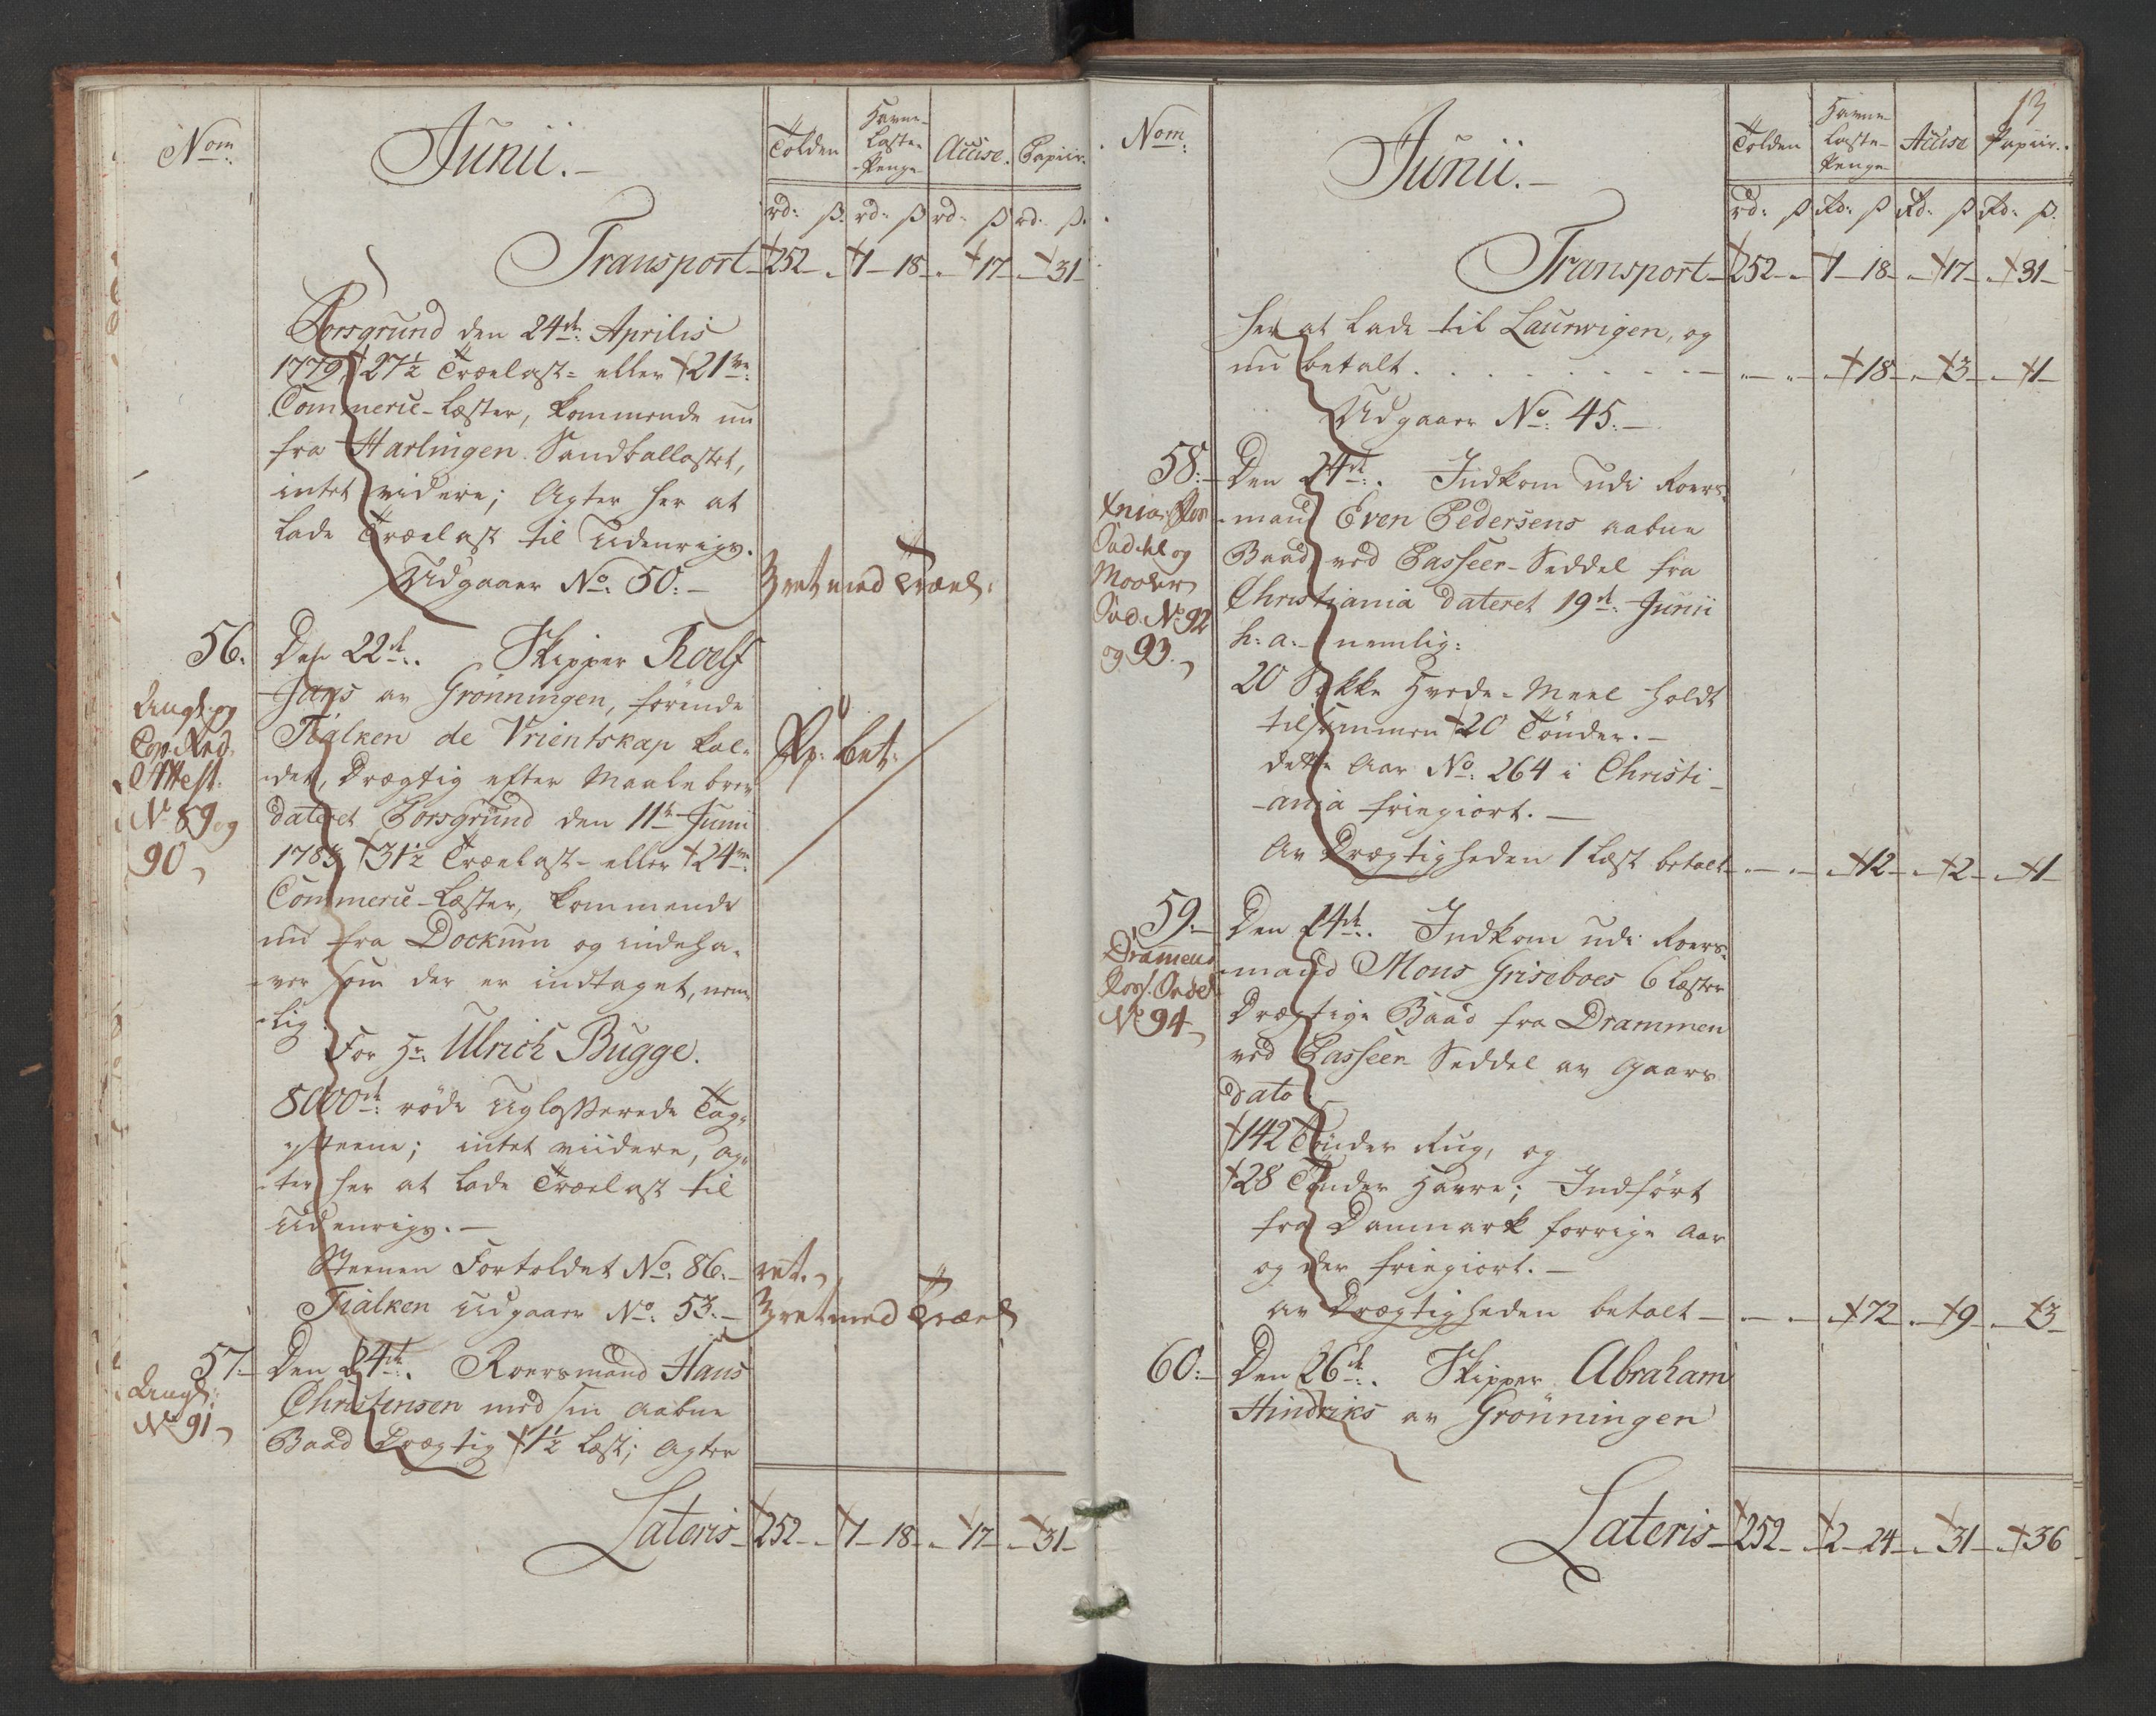 Nom:
Junii.
Tolden
Havne-
Laste-
Penge
Accise.
Papiir.
rd: ß. rd: ß rd: ß rd: ß.
Transport 252 - 1 - 18 - 17 - 31
Porsgrund den 24de Aprilis
1779, 27½ Trælast- eller 21 
Commerce-Læster, kommende nu
fra Harlingen Sandballastet,
intet videre; Agter her at
lade Trælast til Udenrigs.
Udgaaer No: 50.
3 ret med Træel:
56.
Angl. og
Attest.
No 89 og
90
Den 22de. Skipper Roelf
Jans av Grønningen, førende
Tialken de Vrientskap kal-
det, Drægtig efter Maalebrev
dateret Porsgrund den 11te Junii
1783, 31½ Trælast- eller 24 
Commerce-Læster, kommende
nu fra Dockum og indeha-
ver som der er indtaget, nem-
lig
For Hr: Ulrich Bugge.
8000de røde Uglasserede Tag-
steene; intet viidere, ag-
ter her at lade Trælast til
Udenrigs.
Steenen Fortoldet No: 86. ret.
Tialken Udgaaer No: 53. 3 ret med Træel
bet.
57.
Angl:
No 91
Den 24de. Roersmand Hans
Christensen med sin aabne
Baad Drægtig 1½ Læst; Agter
Lateris 252 - 1 - 18 - 17 - 31
13
Nom:
Junii.
Tolden
Havne-
Laste-
Penge
Accise
Papiir.
rd: ß Rd: ß Rd: ß Rd: ß.
Transport 252 - 1 - 18 - 17 - 31
her at lade til Laurwigen, og
nu betalt . . . . . . . 18 - 3 - 1
Udgaaer No: 45.
58.
og
No 92
og 93.
Den 24de. Indkom udi Roers-
mand Even Pedersens aabne
Baad ved Passeer-Seddel fra
Christiania dateret 19de Junii
h: a: nemlig:
20 Sække Hvede-Meel holdt
tilsammen 20 Tønder.
dette Aar No: 264 i Christi-
ania friegiort.
Av Drægtigheden 1 Læst betalt 12 - 2 - 1
59.
Dramens
No 94
Den 24de. Indkom udi Roers-
mand Mons Griseboes 6 Læster
Drægtige Baad fra Drammen
ved Passeer Seddel av Gaars
dato
142 Tønder Rug, og
28 Tønder Havre; Indført
fra Danmark forrige Aar
og der friegiort.
Av Drægtigheden betalt 72 - 9 - 3
60.
Den 26de. Skipper Abraham
Hindriks av Grønningen
Lateris 252 - 2 - 24 - 31 - 36